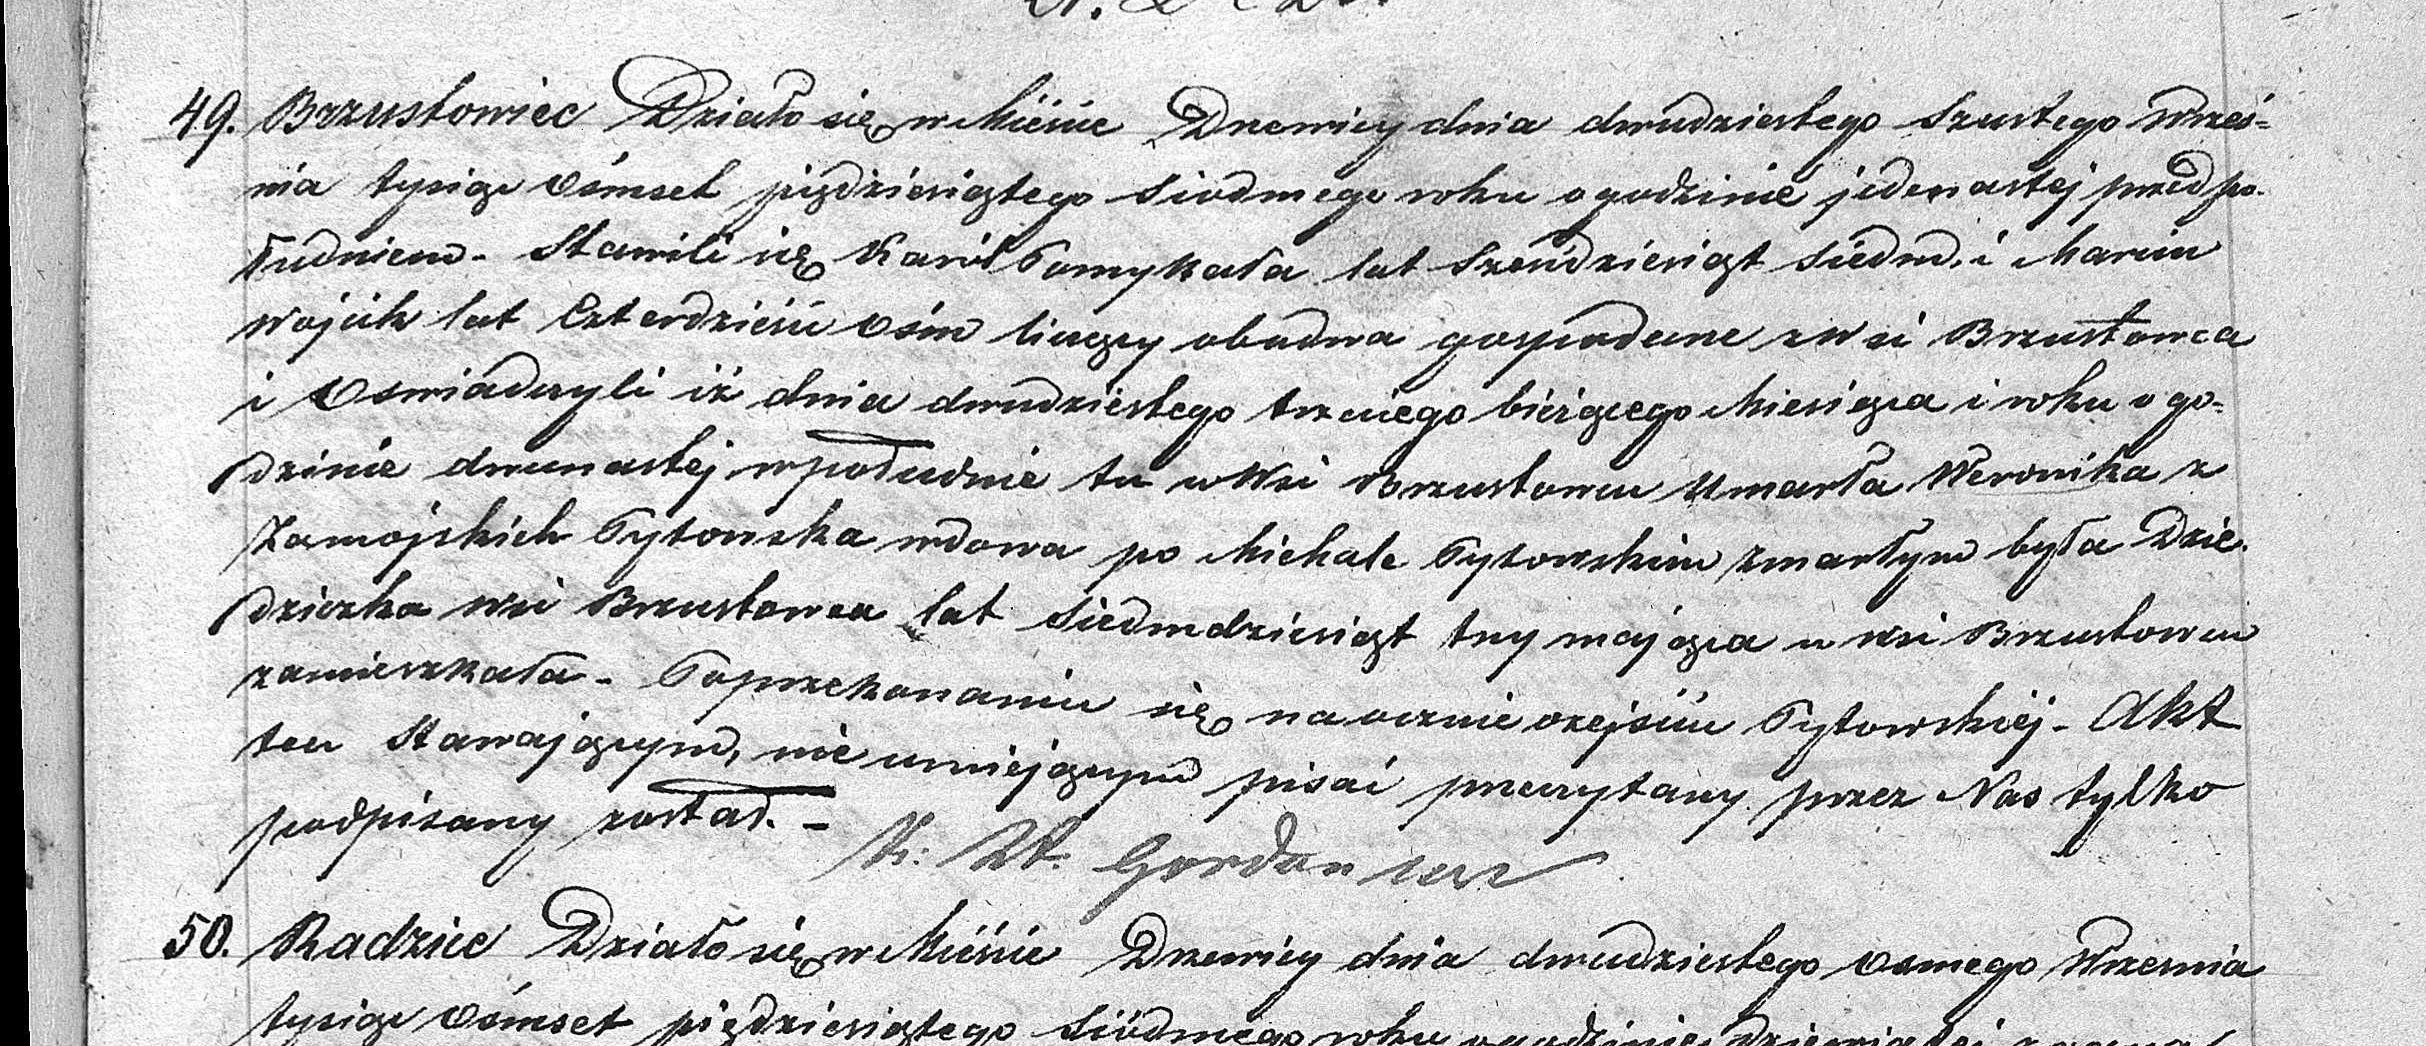 49. Brzustowiec Działo się w Mieście Drzewicy dnia dwudziestego szustego Wrześ=
nia tysiąc ośmset pięдziesiątego siodmego roku o godzinie jedenastej przed po-
łudniem. Stawili się Karól Pomykała lat sześdziesiąt siedm, i Marcin
Wójcik lat czterdzieści ośm liczący obadwa gospodarze z wsi Brzustowca
i oswiadczyli iż dnia dwudziestego trzeciego bieżącego Miesiąca i roku o go=
dzinie dwunastej w południe tu w Wsi Brzustowcu umarła Weronika z
Zamojskich Tytowska wdowa po Michale Tytowskim zmarłym była Dzie-
dziczka wsi Brzustowca lat siedmdziesiąt trzy mająca w wsi Brzustowcu
zamieszkała. Po przekonaniu się naocznie o zejściu Tytowskiej. Akt
ten Stawającym, nie umiejącym pisać przeczytany przez Nas tylko
podpisany został. –
Gordon
50. Radzice Działo się w Mieście Drzewicy dnia dwudziestego osmego Wrzesnia
tysiąc ośmset pięдziesiątego siódmego roku o godzinie dziewiątej